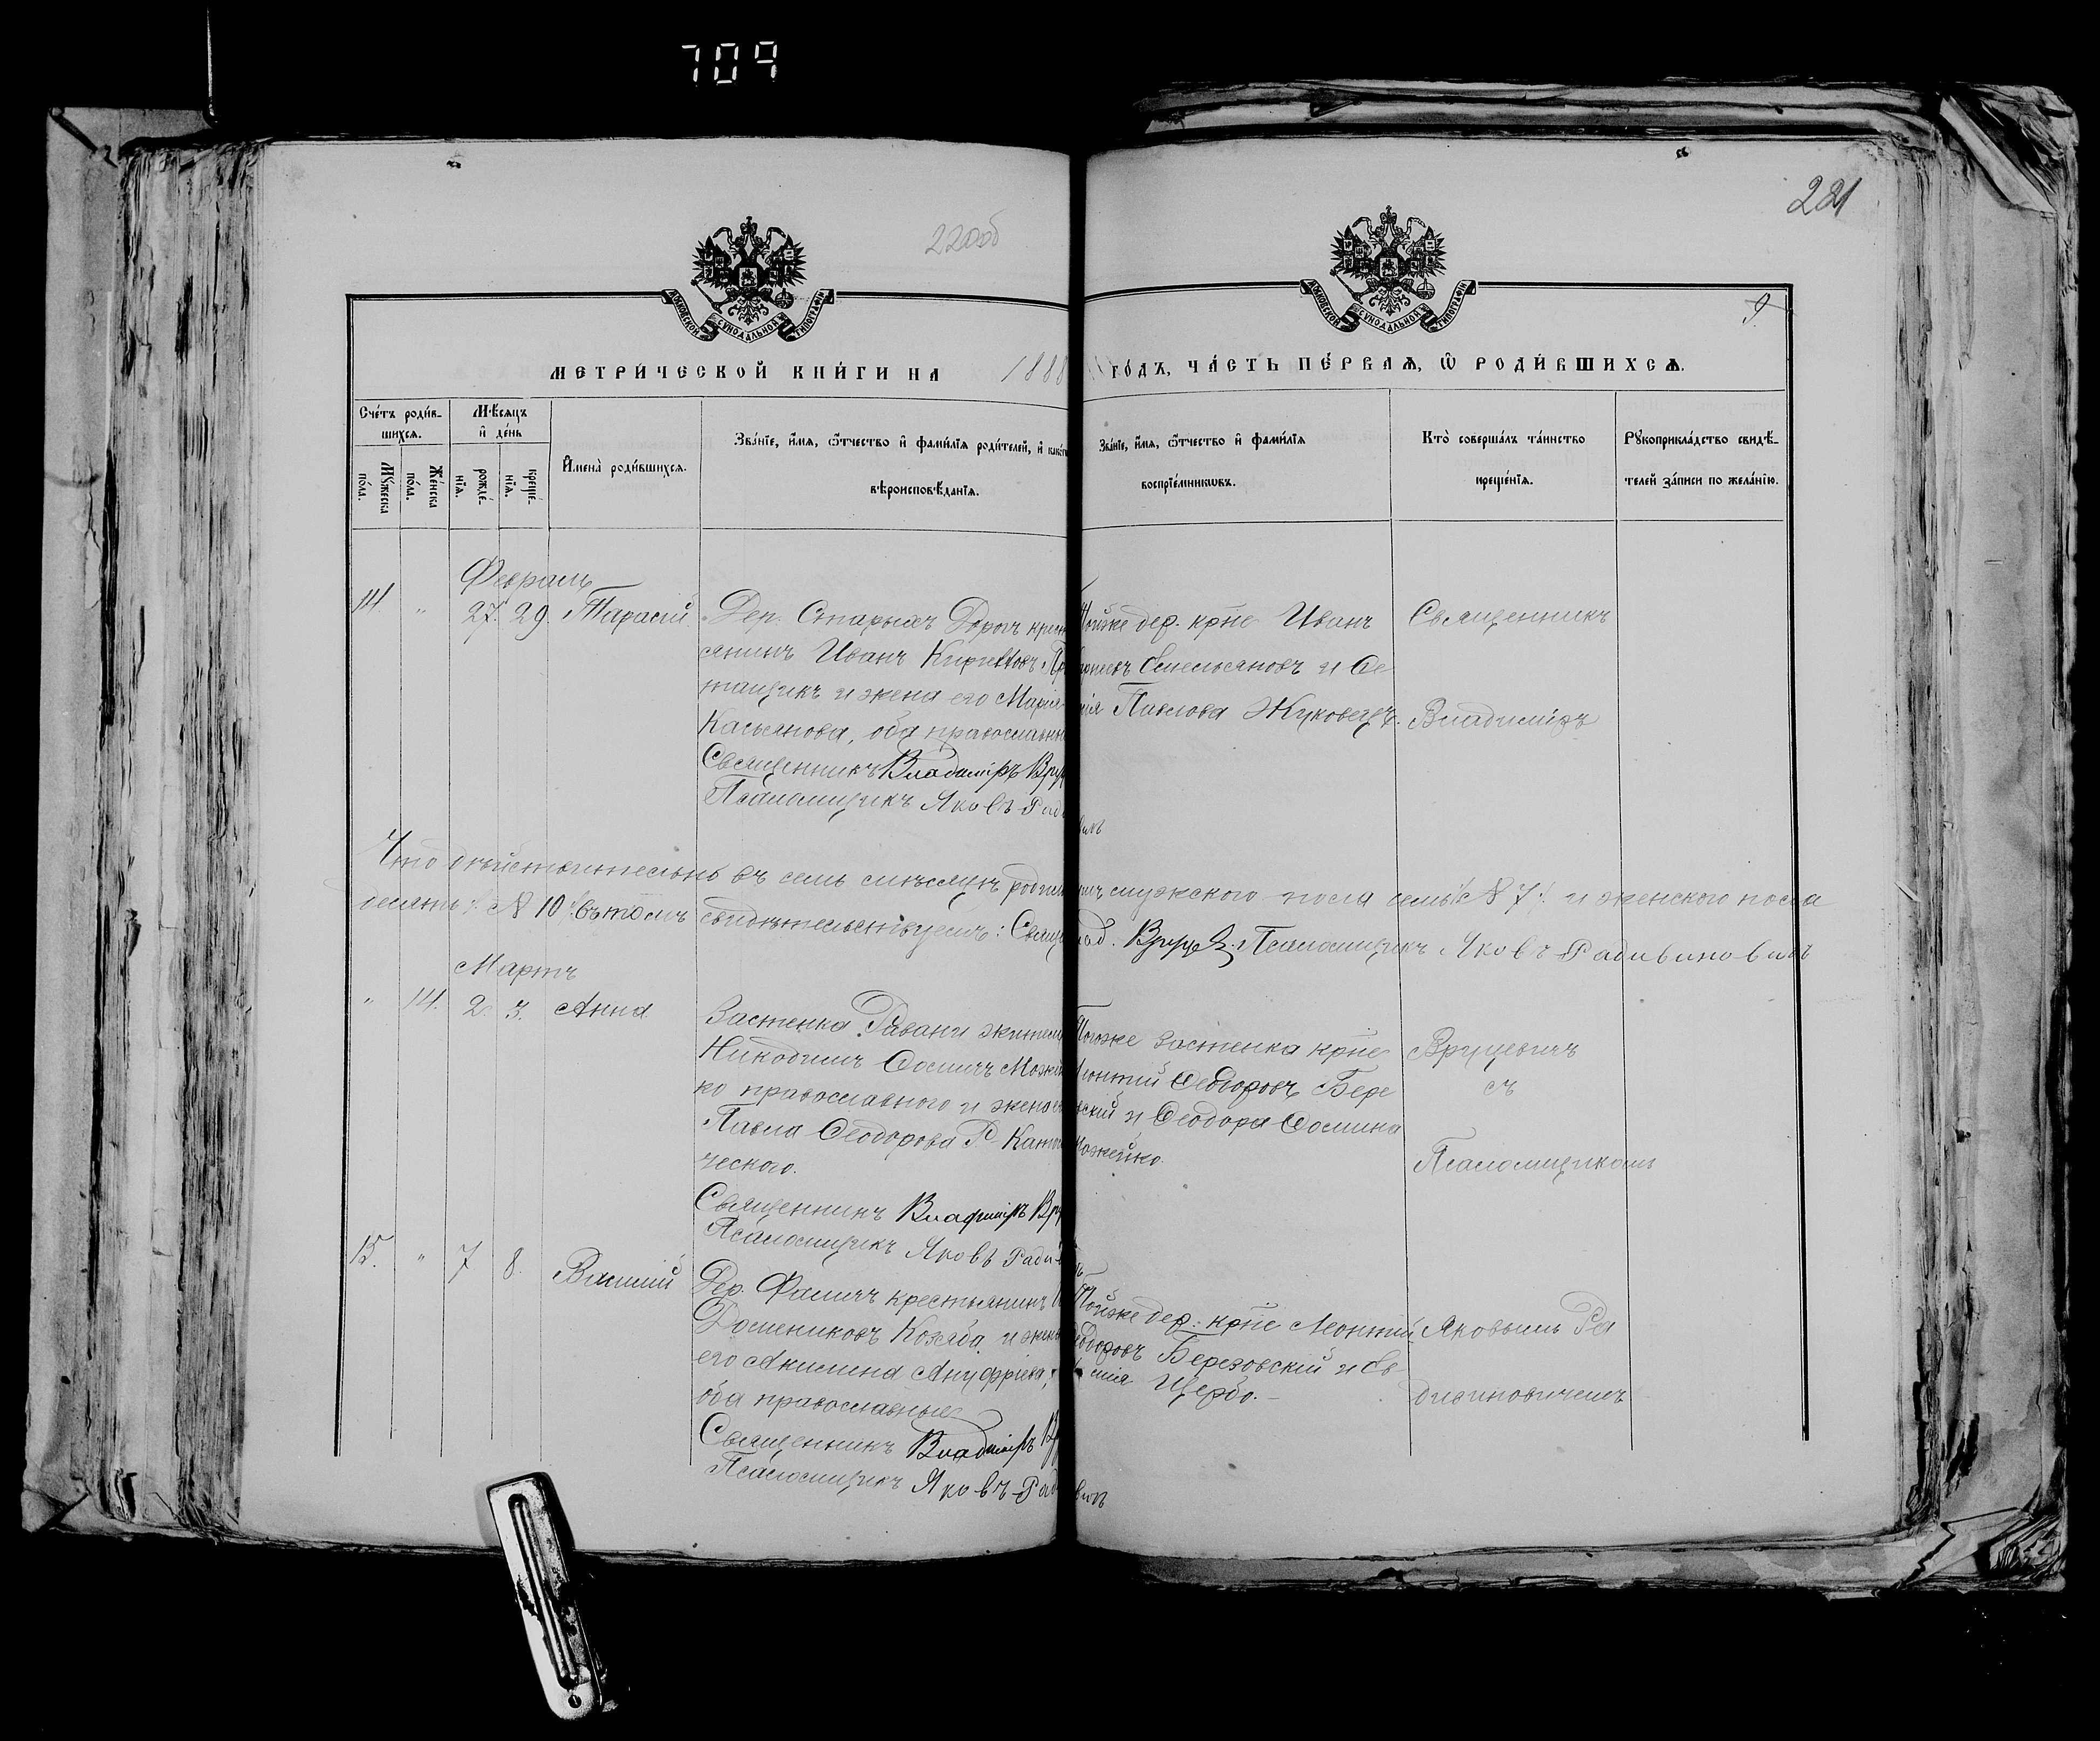 709
221
220об
МОСКОВСКОЙ СѴНОДАЛЬНОЙ ТИПОГРАФІИ
МОСКОВСКОЙ СѴНОДАЛЬНОЙ ТИПОГРАФІИ
9.
МЕТРИ́ЧЕСКОЙ КНИ́ГИ НА 1888 ГО́ДЪ, ЧА́СТЬ ПЕ́РВАѦ, Ѿ РОДИ́ВШИХСѦ.
Сче́тъ роди́в-
шихсѧ.
Мꙋ́жеска
по́ла.
Же́нска
по́ла.
Мѣ́сѧцъ
и҆ де́нь
рожде́-
нїѧ.
креще́-
нїѧ.
И҆мена̀ роди́вшихсѧ.
Зва́нїе, и҆́мѧ, ѻ҆́тчество и҆ фами́лїѧ роди́телей, и҆
вѣроисповѣ́данїѧ.
Зва́нїе, и҆́мѧ, ѻ҆́тчество и҆ фами́лїѧ
воспрїе́мникѡвъ.
Кто̀ соверша́лъ та́инство
креще́нїѧ.
Рꙋкоприкла́дство свидѣ́-
телей за́писи по жела́нїю.
Февраль
14. " 27. 29. Тарасій
Дер. Старыхъ Дорогъ крест
янинъ Иванъ
тащикъ и жена его Марія
Касьянова, оба православн
Священникъ Владиміръ Вру
Псаломщикъ Яковъ Рад
Тойже дер. крне Иванъ
Емельяновъ и
Павлова Жуковецъ.
Священникъ
Владиміръ
Что дѣйствительно въ семъ мѣсяцѣ мужского пола семь № 7 и женского пола
десять № 10 въ томъ свидѣтельствуемъ: Свящ Псаломщикъ Яковъ Радивиновичъ
Мартъ
" 14. 2. 3. Анна
Застенка жител
Никодимъ Ѳоминъ Можей
ко православного и жены
Павла Ѳеодорова Р. Като
ческого.
Священникъ Владиміръ Вру
Псаломщикъ Яковъ Ради
Тогоже застенка крне
Ѳеодоровъ Бере
вскій и Ѳеодора Ѳомина
Можейко.
Вруцевичъ
съ
Псаломщикомъ
15. " 7 8. Василій
Дер. Фаличъ крестьянинъ
Козяба и жена
его Акилина Ануфріева,
оба православные
Священникъ Владиміръ В
Псаломщикъ Яковъ Рад
Тойже дер. крне Леонтій
Ѳеодоровъ Березовскій и Ев
Щербо.
Яковымъ Ра
дивиновичемъ